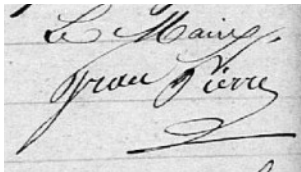 Le Maire,
Grau Pierre